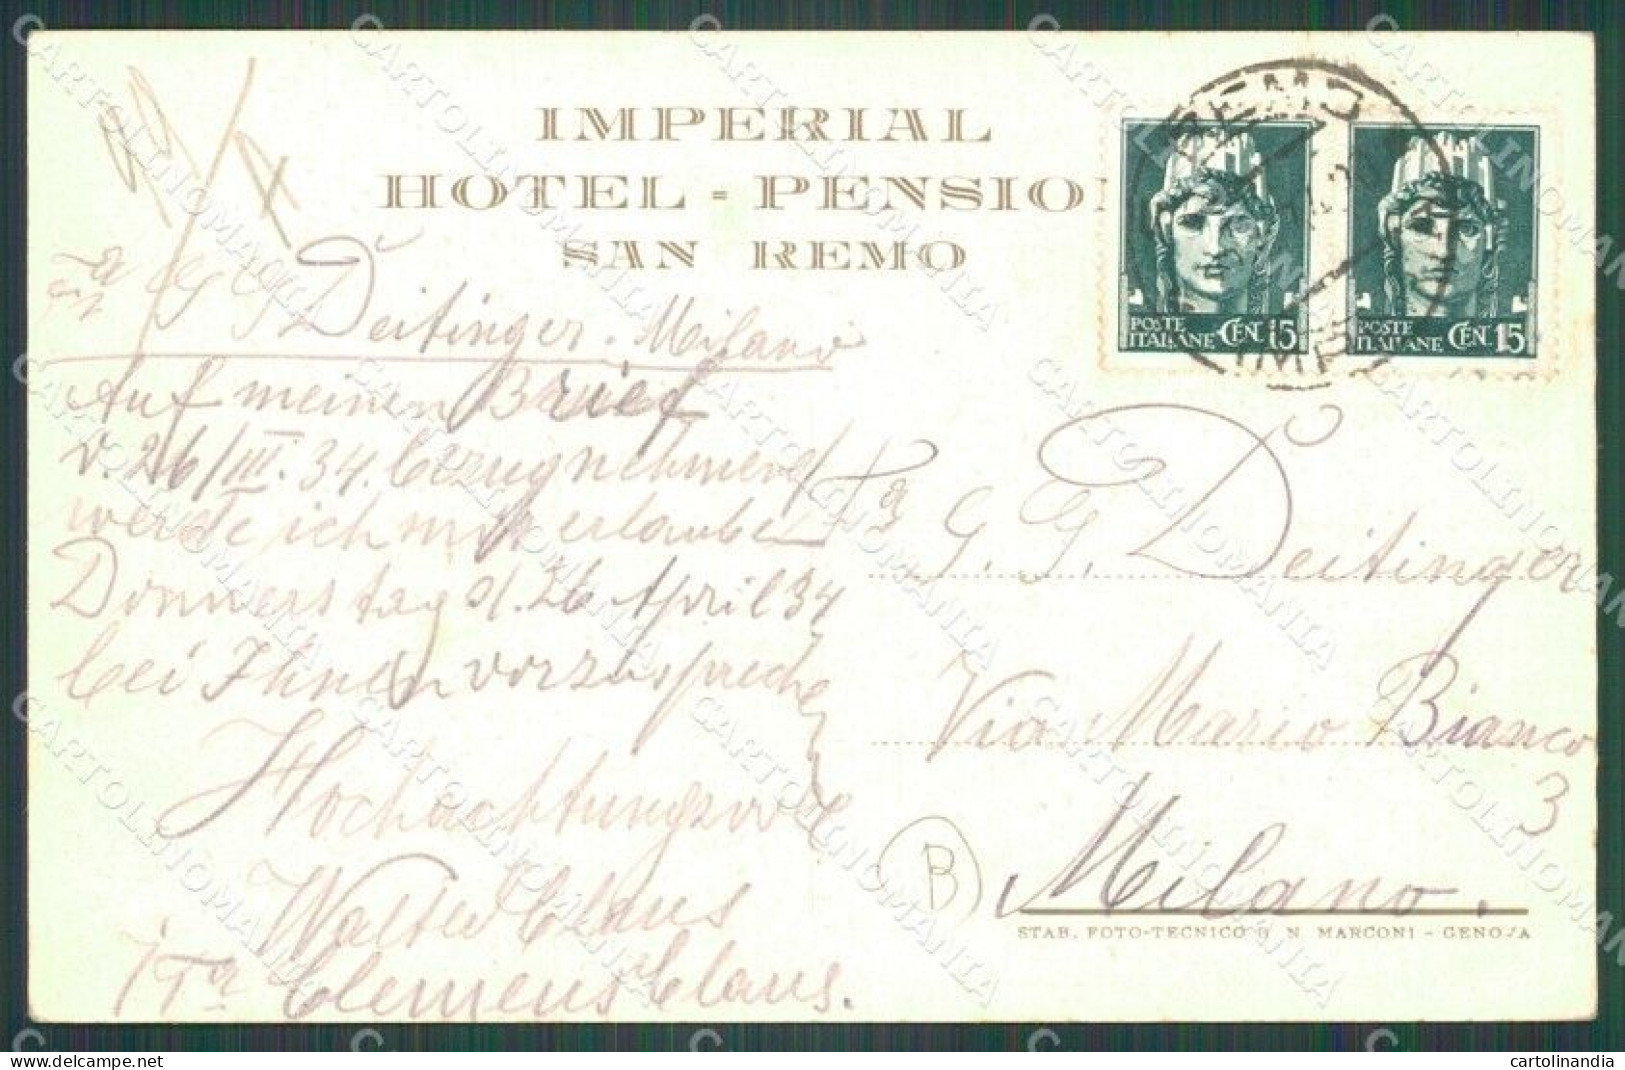 IMPERIAL
HOTEL - PENSIO
SAN REMO
POSTE ITALIANE CEN. 15
POSTE ITALIANE CEN. 15
Fa G G Deitinger. Milano
Auf meinen Brief
v. 26/III. 34. bezugnehmend
werde ich mir erlauben
Donnerstag d. 26 April 34
bei Ihnen vorzusprechen
Hochachtungsvoll
Walter Claus
i/Fa Clemens Claus.
Fa G. G. Deitinger
Via Mario Bianco
3
Milano.
B
STAB. FOTO-TECNICO G. N. MARCONI - GENOVA
CARTOLINOMANIA
cartolinandia